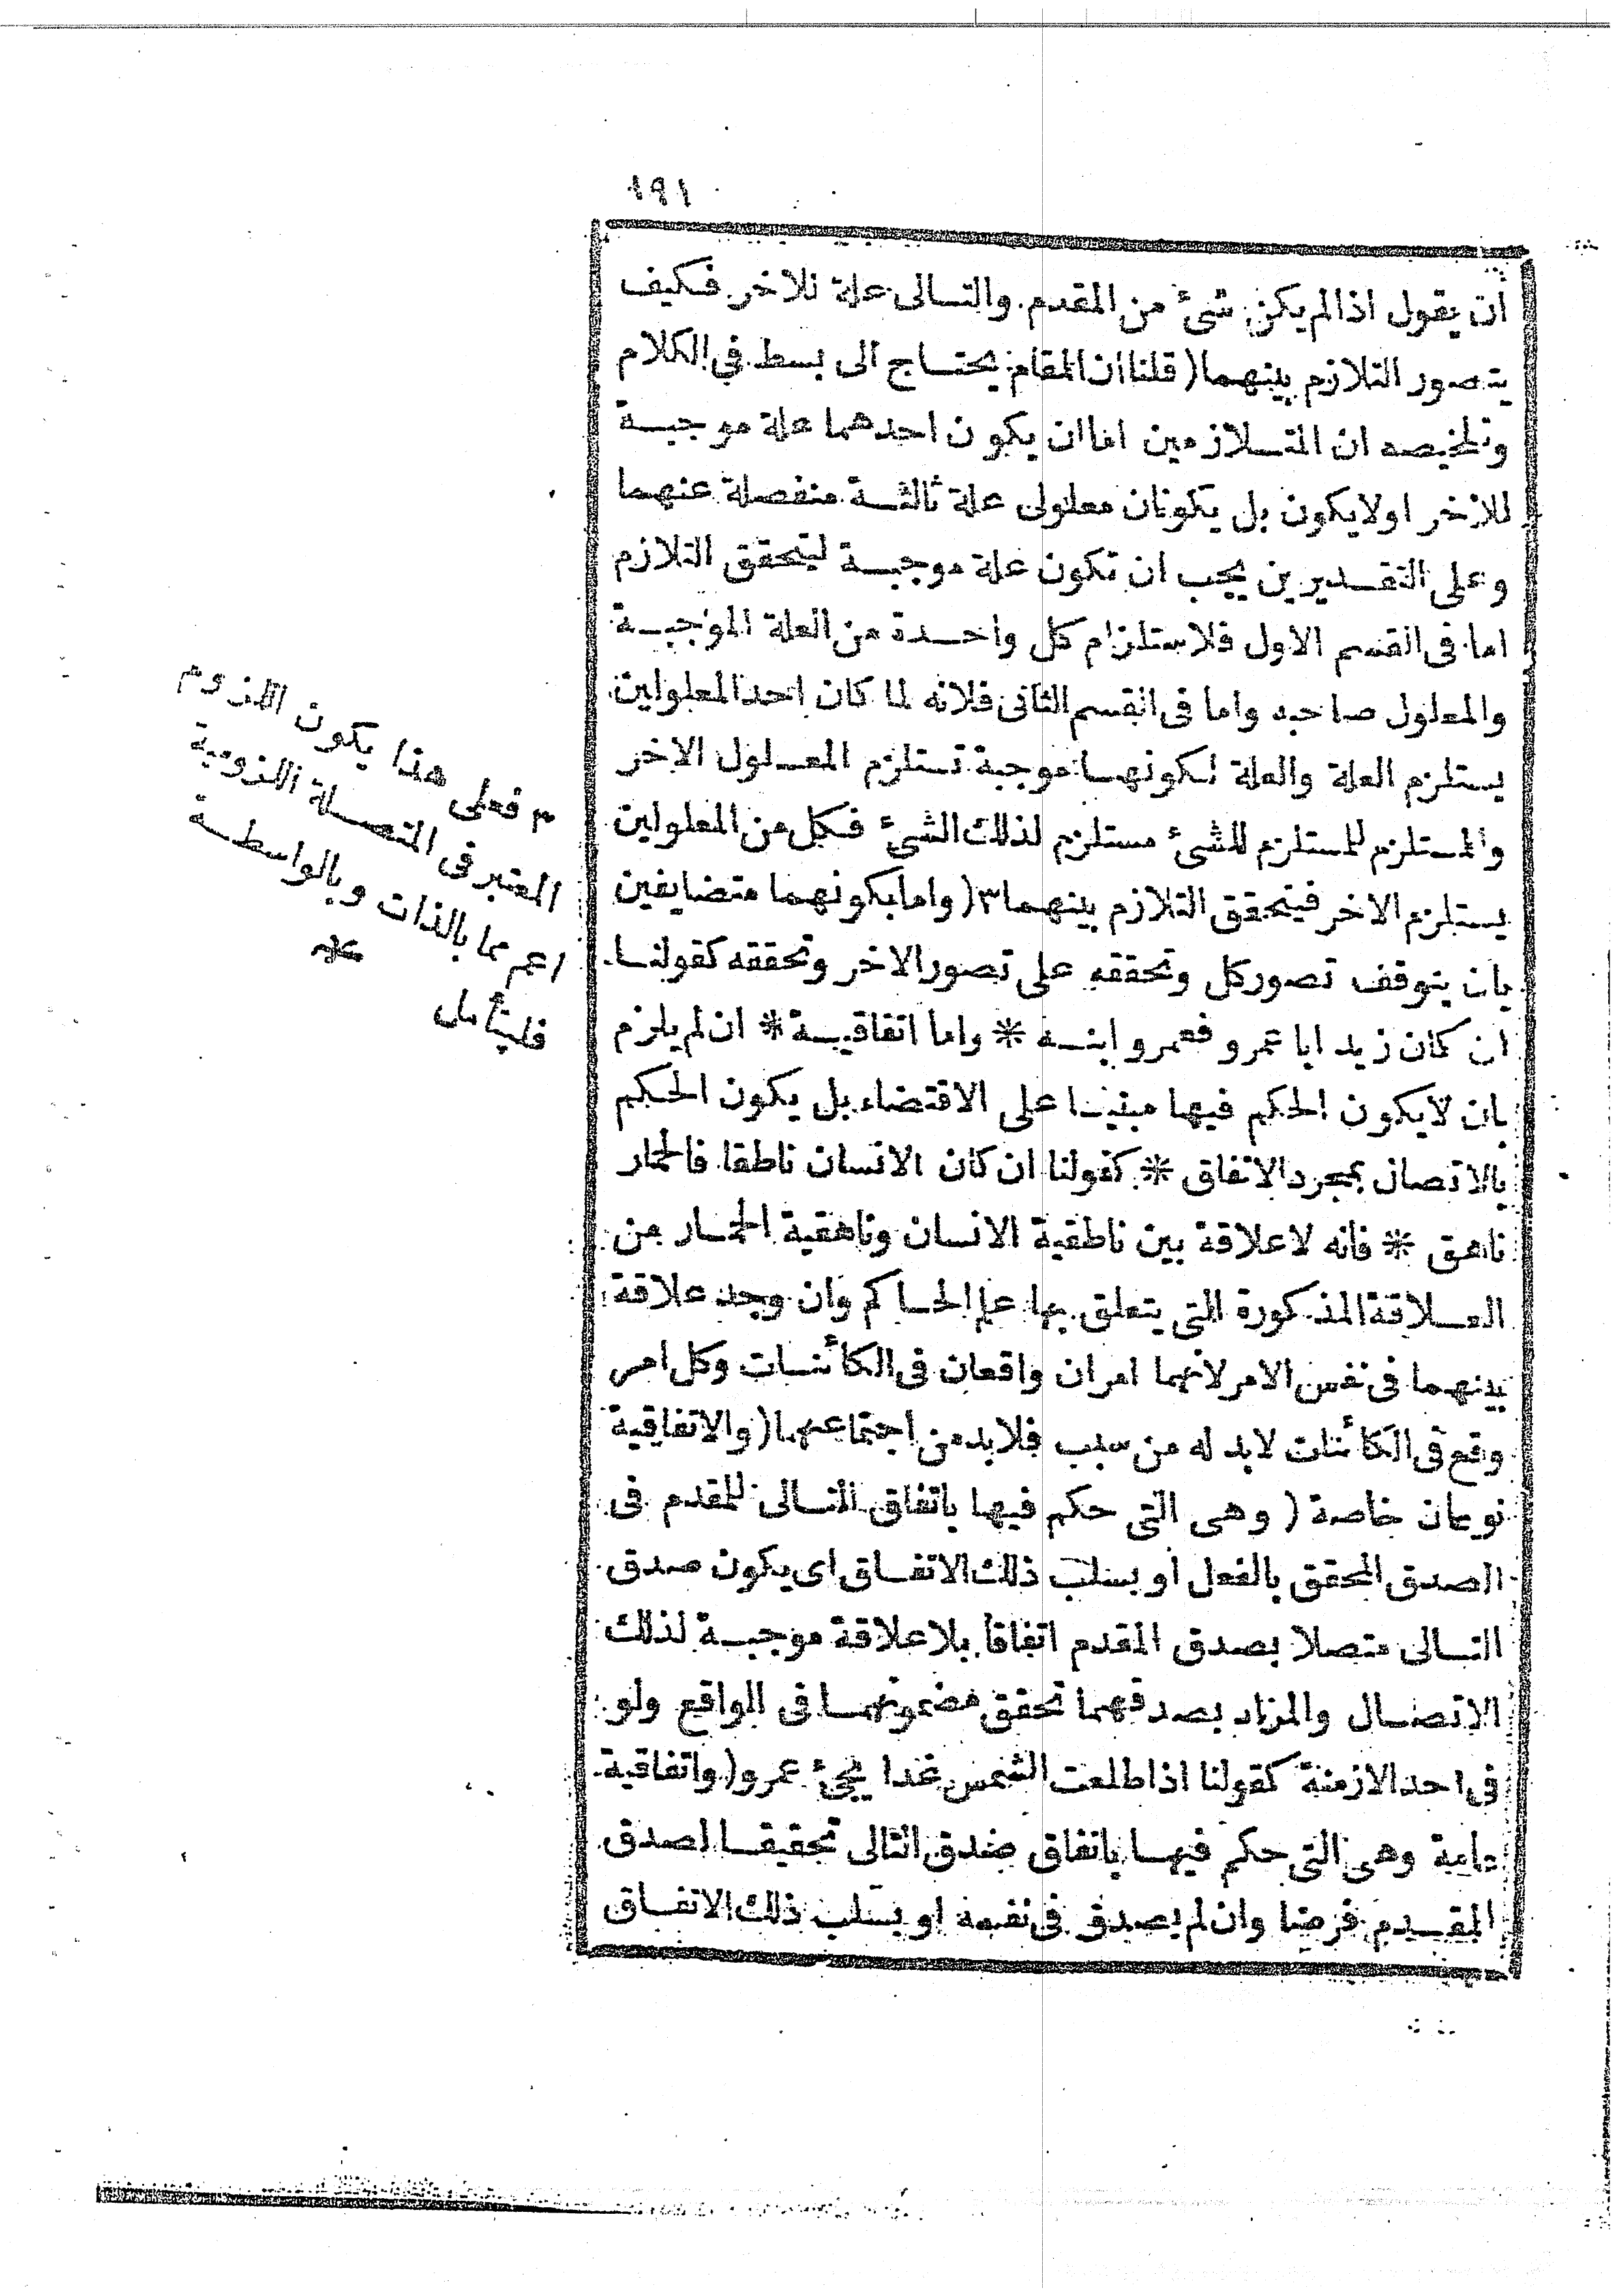 ١٩١
ان يقول اذا لم يكن شئ من المقدم والتالى علة للاخر فكيف
يتصور التلازم بينهما ( قلنا ان المقام يحتاج الى بسط فى الكلام
وتلخيصه ان المتلازمين اما ان يكون احدهما علة موجبة
للاخر او لا يكون بل يكونان معلولى علة ثالثة منفصلة عنهما
وعلى التقديرين يجب ان تكون علة موجبة ليتحقق التلازم
اما فى القسم الاول فلاستلزام كل واحدة من العلة الموجبة
والمعلول صاحبه واما فى القسم الثانى فلانه لما كان احد المعلولين
يستلزم العلة والعلة لكونها موجبة تستلزم المعلول الاخر
والمستلزم للمستلزم للشئ مستلزم لذلك الشئ فكل من المعلولين
يستلزم الاخر فيتحقق التلازم بينهما ٣ ( واما بكونهما متضايفين
بان يتوقف تصور كل وتحققه على تصور الاخر وتحققه كقولنا
ان كان زيد ابا عمرو فعمرو ابنه * واما اتفاقية * ان لم يلزم
بان لا يكون الحكم فيها مبنيا على الاقتضاء بل يكون الحكم
بالاتصال بمجرد الاتفاق * كقولنا ان كان الانسان ناطقا فالحمار
ناهق * فانه لا علاقة بين ناطقية الانسان وناهقية الحمار من
العلاقة المذكورة التى يتعلق بها علم الحاكم وان وجد علاقة
بينهما فى نفس الامر لانهما امران واقعان فى الكائنات وكل امر
وقع فى الكائنات لابد له من سبب فلابد من اجتماعهما ( والاتفاقية
نوعان خاصة ( وهى التى حكم فيها باتفاق التالى للمقدم فى
الصدق المحقق بالفعل او بسلب ذلك الاتفاق اى يكون صدق
التالى متصلا بصدق المقدم اتفاقا بلا علاقة موجبة لذلك
الاتصال والمراد بصدقهما تحقق مضمونهما فى الواقع ولو
فى احد الازمنة كقولنا اذا طلعت الشمس غدا يجئ عمرو ( واتفاقية
عامة وهى التى حكم فيها باتفاق صدق التالى تحقيقا لصدق
المقدم فرضا وان لم يصدق فى نفسه او بسلب ذلك الاتفاق
٣ فعلى هذا يكون اللزوم
المعتبر فى المتصلة اللزومية
اعم مما بالذات وبالواسطة
فليتأمل *